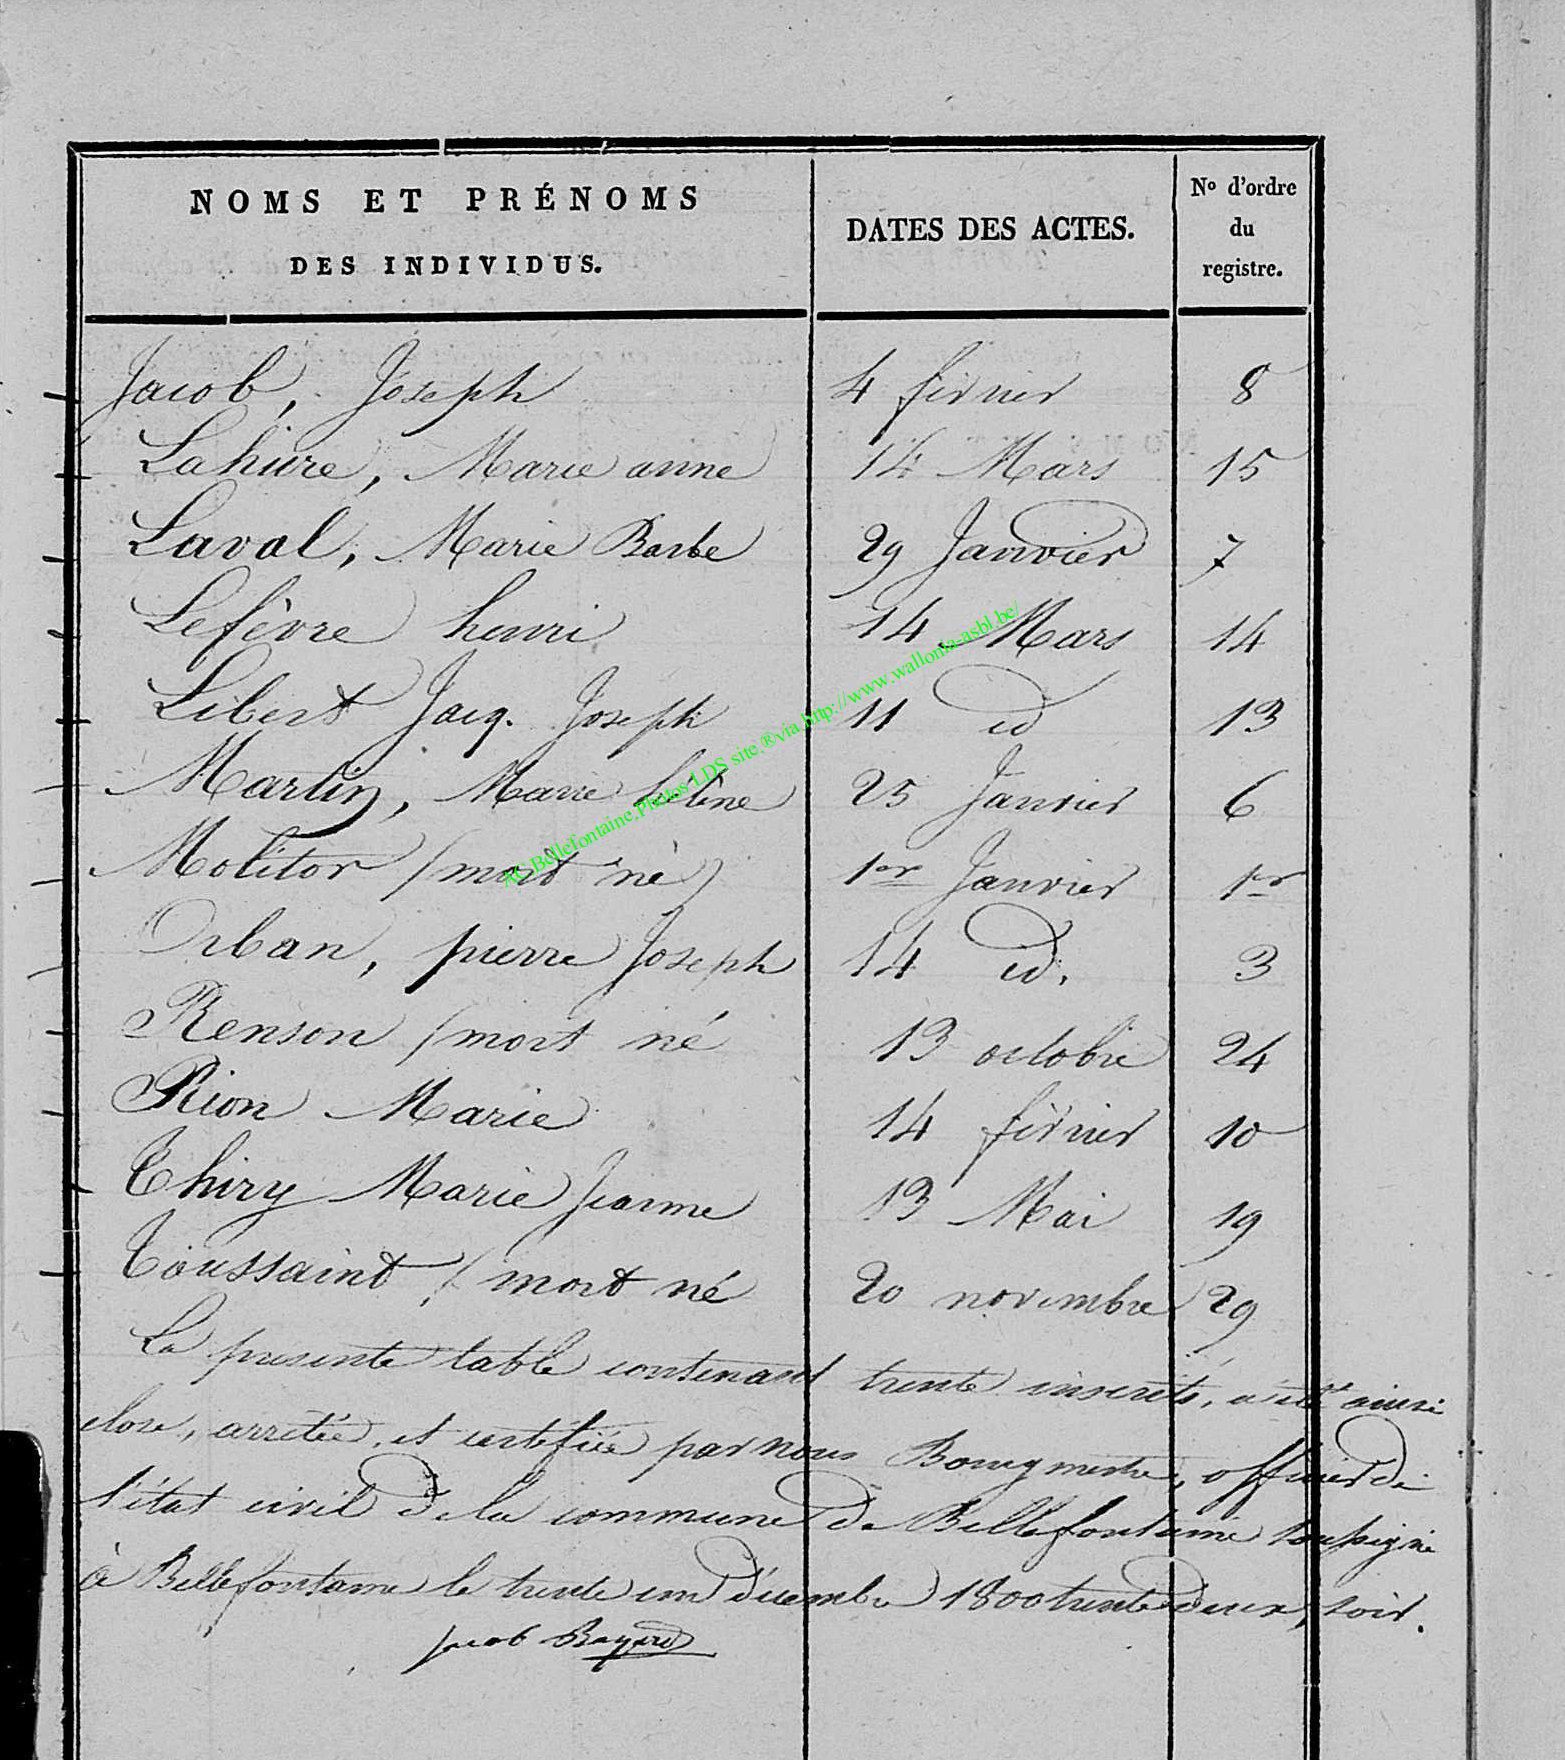 NOMS ET PRÉNOMS
DES INDIVIDUS.
DATES DES ACTES.
No d'ordre
du
registre.
Jacob, Joseph 4 février 8
Lahure, Marie anne 14 Mars 15
Laval, Marie Barbe 29 Janvier 7
Lefèvre henri 14 Mars 14
Libert Jacq. Joseph 11 id 13
Martin, Marie hélène 25 Janvier 6
Molitor (mort né) 1er Janvier 1er
Orban, pierre Joseph 14 id. 3
Renson (mort né 13 octobre 24
Rion Marie 14 février 10
Thiry Marie Jeanne 13 Mai 19
Toussaint (mort né 20 novembre 29
La presente table contenant trente inscrits, a été ainsi
close, arretée, et certifiée par nous Bourgmestre, officier de
l'état civil de la commune de Bellefontaine soussigné
à Bellefontaine le trente un décembre 1800 trente deux, soir.
Jacob Bayard
AC.Bellefontaine.Photos LDS site.®via http://www.wallonia-asbl.be/